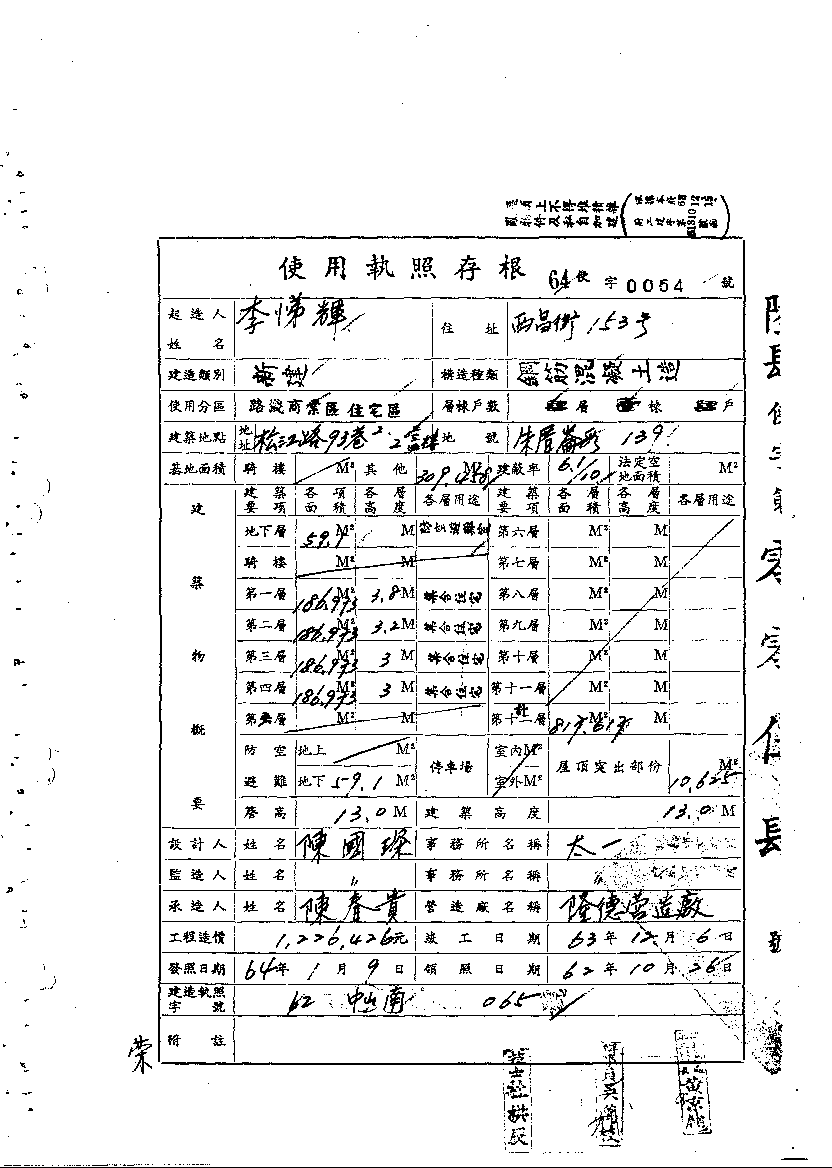 使用執照存根 64使字0054號
起造人姓名 李悌輝 住址 西昌街153号
建造類別 新建 構造種類 鋼筋混凝土造
使用分區 路線商業區住宅區 層棟戶數 層 棟 戶
建築地點 地址 松江路93巷2 地號 朱厝崙段139
基地面積 騎樓 M² 其他 309.4258 M² 建蔽率 6.1/10 法定空地面積 M²
建築物概要
建築要項 各項面積 各層高度 各層用途 建築要項 各層面積 各層高度 各層用途
地下層 59.1 M² M 第六層 M² M
騎樓 M² M 第七層 M² M
第一層 186.973 M² 3.8 M 集合住宅 第八層 M² M
第二層 186.973 M² 3.2 M 集合住宅 第九層 M² M
第三層 186.973 M² 3 M 集合住宅 第十層 M² M
第四層 186.973 M² 3 M 集合住宅 第十一層 M² M
第五層 M² M 第十二層 計 817.617
防空避難 地上 M² 地下 59.1 M² 停車場 室內 M² 室外 M² 屋頂突出部份 10.625 M²
簷高 13.0 M 建築高度 13.0 M
設計人 姓名 陳國琛 事務所名稱 太一
監造人 姓名 〃 事務所名稱 〃
承造人 姓名 陳春貴 營造廠名稱 隆德營造廠
工程造價 1,226,426元 竣工日期 63年12月6日
發照日期 64年1月9日 領照日期 62年10月26日
建造執照字號 62 中山南 065
附註
榮